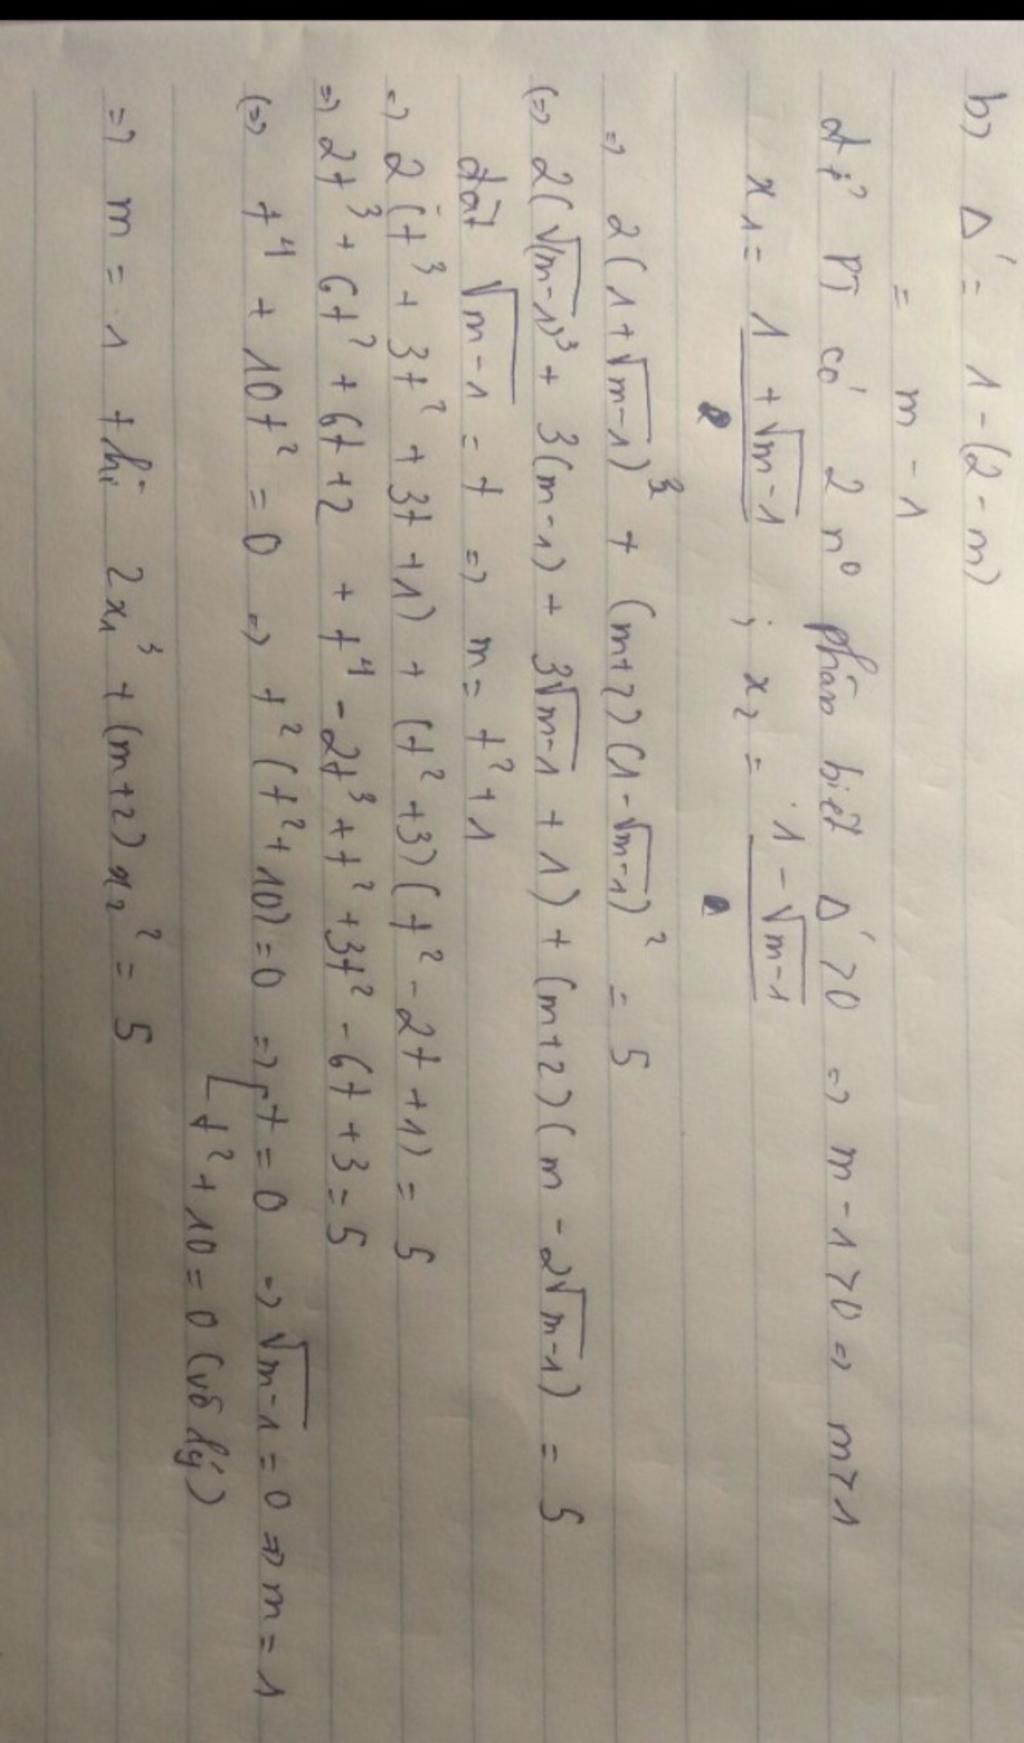 b) Δ' = 1 - (2 - m)
= m - 1
để PT có 2 n⁰ phân biệt Δ' > 0 => m - 1 > 0 => m > 1
x₁ = 1 + √(m-1) ; x₂ = 1 - √(m-1)
=> 2(1 + √(m-1))³ + (m+2)(1 - √(m-1))² = 5
(=> 2(√(m-1)³ + 3(m-1) + 3√(m-1) + 1) + (m+2)(m - 2√(m-1)) = 5
đặt √(m-1) = t => m = t² + 1
=> 2(t³ + 3t² + 3t + 1) + (t² + 3)(t² - 2t + 1) = 5
=> 2t³ + 6t² + 6t + 2 + t⁴ - 2t³ + t² + 3t² - 6t + 3 = 5
(=> t⁴ + 10t² = 0 => t²(t² + 10) = 0 => [t = 0 => √(m-1) = 0 => m = 1
t² + 10 = 0 (vô lý)
=> m = 1 thì 2x₁³ + (m+2)x₂² = 5